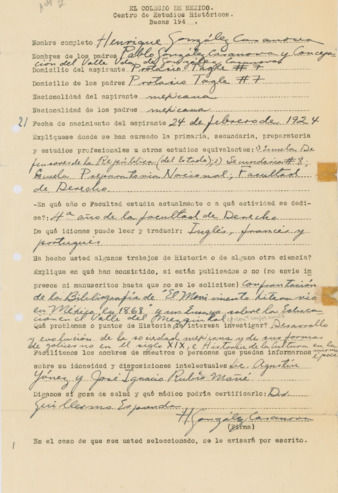 EL COLEGIO DE MEXICO.
Centro de Estudios Históricos.
Becas 194 .
Nombre completo Henrique González Casanova
Nombres de los padres Pablo González Casanova y Concepción
del Valle Vda. de González Casanova
Domicilio del aspirante Protasio Tagle # 7
Domicilio de los padres Protasio Tagle # 7
Nacionalidad del aspirante mexicana
Nacionalidad de los padres mexicana
21 Fecha de nacimiento del aspirante 24 de febrero de 1924
Explíquese donde se han cursado la primaria, secundaria, preparatoria
y estudios profesionales u otros estudios equivalentes: Escuela De
fensores de la República (del Estado); Secundaria # 3;
Escuela Preparatoria Nacional; Facultad
de Derecho
-En qué año o Facultad estudia actualmente o a qué actividad se dedi-
ca?: 4º año de la facultad de Derecho
De qué idiomas puede leer y traducir: Inglés, francés y
portugués
Ha hecho usted algunos trabajos de Historia o de alguna otra ciencia?
Explique en qué han consistido, si están publicados o no (no envíe im
presos ni manuscritos hasta que no se le soliciten) Confrontación
de la Bibliografía de "El Movimiento literario
en México, 1868, y un Ensayo sobre la Educa
ción en el Valle del Mezquital
Qué problemas o puntos de Historia le interesa investigar? Desarrollo
y evolución de la sociedad mexicana y de sus formas
de gobierno en el siglo XIX, e Historia de la cultura en la
Facilítenos los nombres de maestros o personas que puedan informarnos
sobre su idoneidad y disposiciones intelectuales: Lic. Agustín
Yáñez y José Ignacio Rubio Mañé
Díganos si goza de salud y qué médico podría certificarlo: Dr
Guillermo
H González Casanova
(Firma)
En el caso de que sea usted seleccionado, se le avisará por escrito.